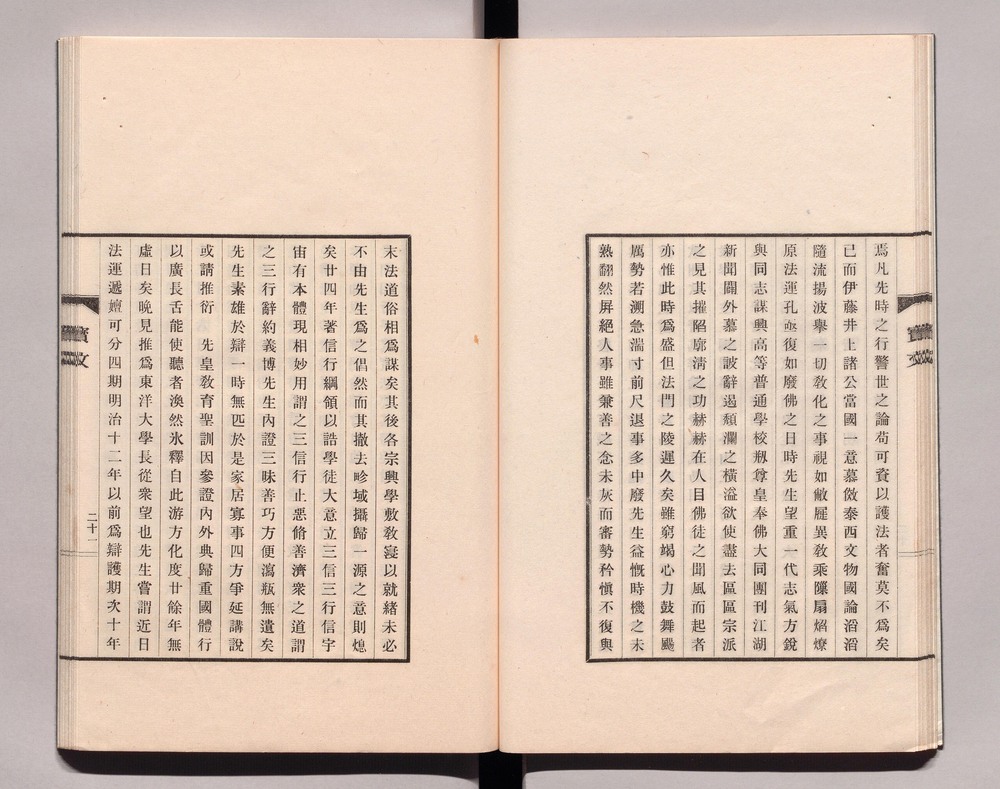 焉凡先時之行警世之論苟可資以護法者奮莫不爲矣
已而伊藤井上諸公當國一意慕倣泰西文物國論滔滔
隨流揚波擧一切敎化之事視如敝屣異敎乘隙扇焰燎
原法運孔亟復如廢佛之日時先生望重一代志氣方銳
與同志謀興高等普通學校剏尊皇奉佛大同團刊江湖
新聞闢外慕之詖辭遏頹瀾之橫溢欲使盡去區區宗派
之見其摧陷廓淸之功赫赫在人目佛徒之聞風而起者
亦惟此時爲盛但法門之陵遲久矣雖窮竭心力鼓舞颺
厲勢若溯急湍寸前尺退事多中廢先生益慨時機之未
熟翻然屏絕人事雖兼善之念未灰而審勢矜愼不復輿
末法道俗相爲謀矣其後各宗興學敷敎寖以就緖未必
不由先生爲之倡然而其撤去畛域攝歸一源之意則熄
矣廿四年著信行綱領以誥學徒大意立三信三行信宇
宙有本體現相妙用謂之三信行止惡脩善濟衆之道謂
之三行辭約義博先生內證三昧善巧方便瀉瓶無遺矣
先生素雄於辯一時無匹於是家居寡事四方爭延講說
或請推衍　先皇敎育聖訓因參證內外典歸重國體行
以廣長舌能使聽者渙然氷釋自此游方化度廿餘年無
虛日矣晚見推爲東洋大學長從衆望也先生嘗謂近日
法運遞嬗可分四期明治十二年以前爲辯護期次十年
二十一